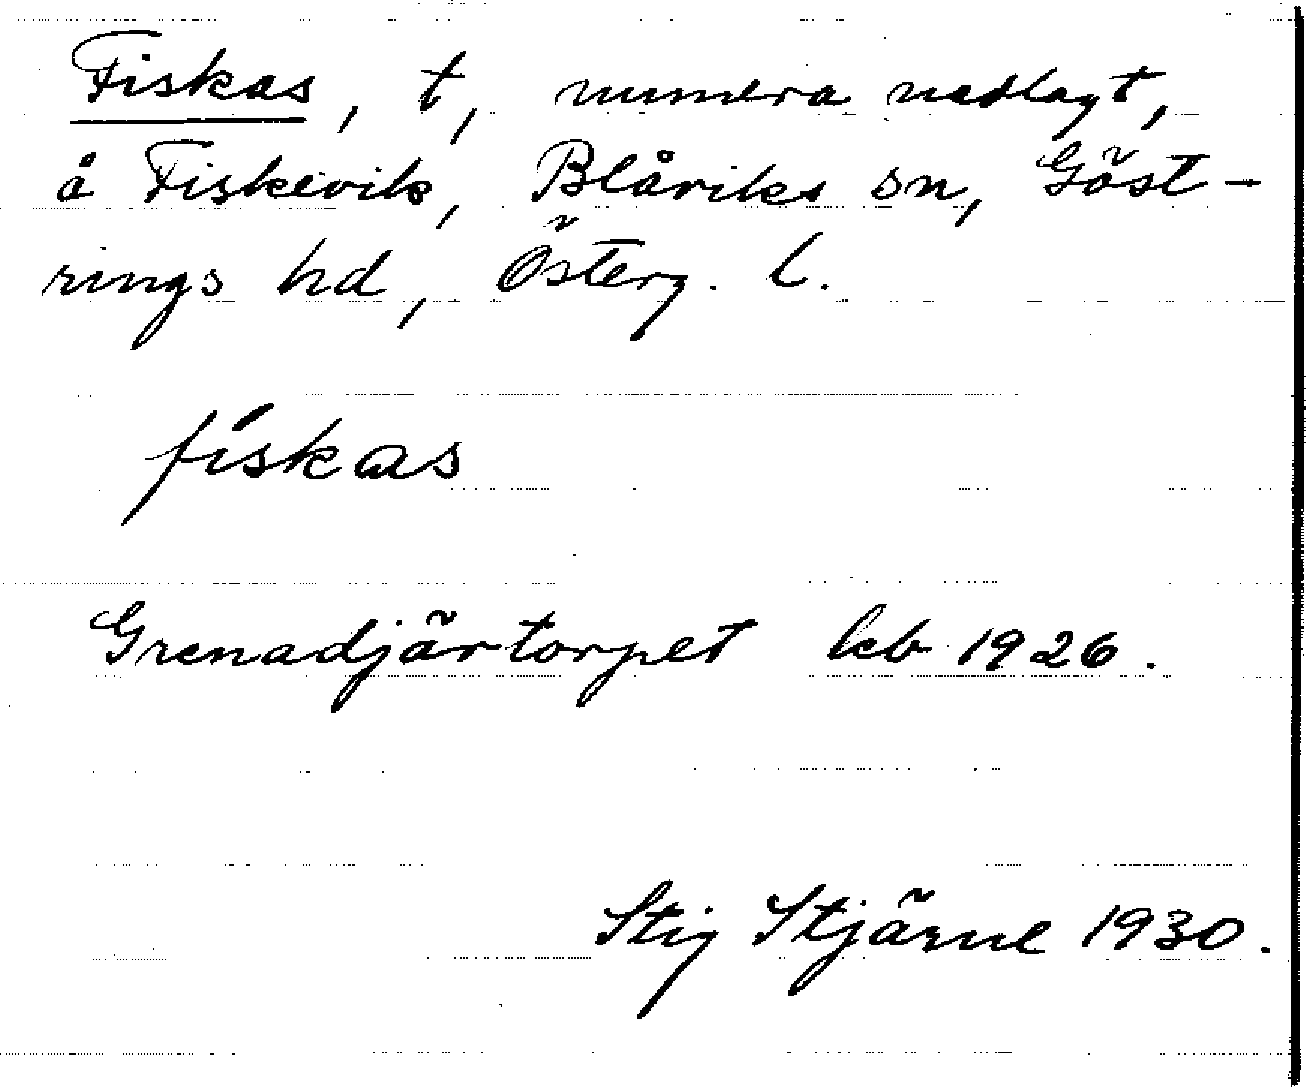 Fiskas, t, numera nedlagt,
å Fiskevik, Blåviks sn, Göst-
rings hd, Österg. l.
fiskas
Grenadjärtorpet kb 1926.
Stig Stjärne 1930.